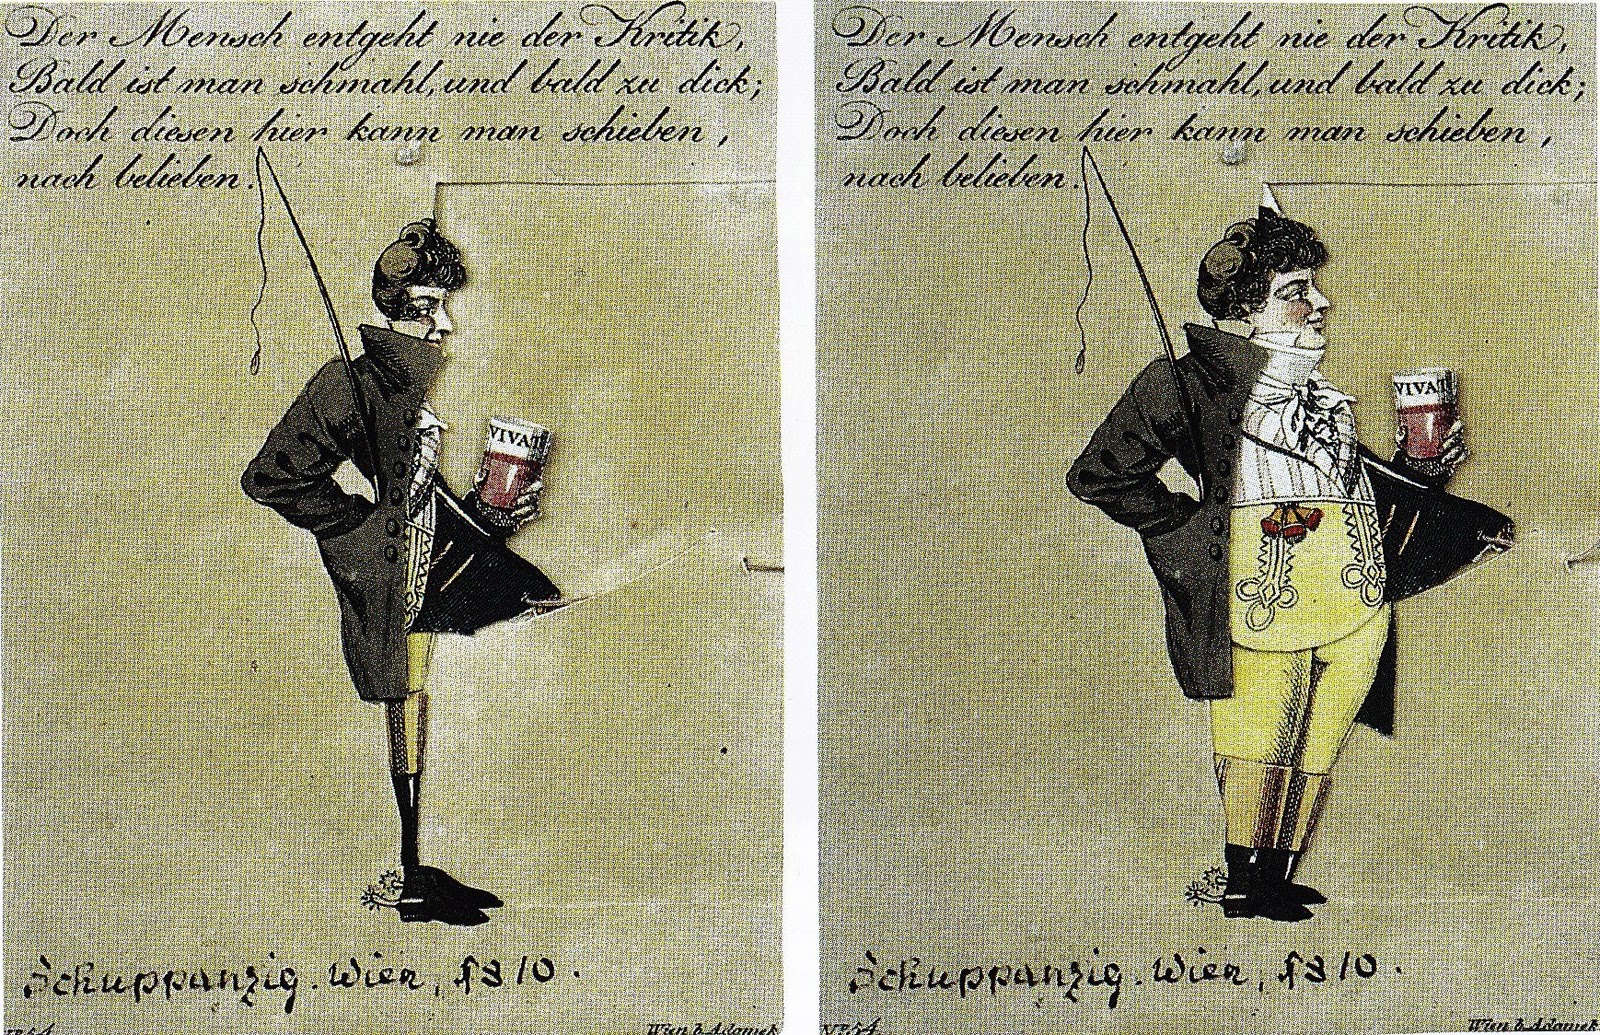 Der Mensch entgeht nie der Kritik,
Bald ist man schmahl, und bald zu dick;
Doch diesen hier kann man schieben,
nach belieben.
VIVAT
Schuppanzig. Wien, 1810.
Wien b. Adamek
Der Mensch entgeht nie der Kritik,
Bald ist man schmahl, und bald zu dick;
Doch diesen hier kann man schieben,
nach belieben.
VIVAT
Schuppanzig. Wien, 1810.
Nro. 54.
Wien b. Adamek